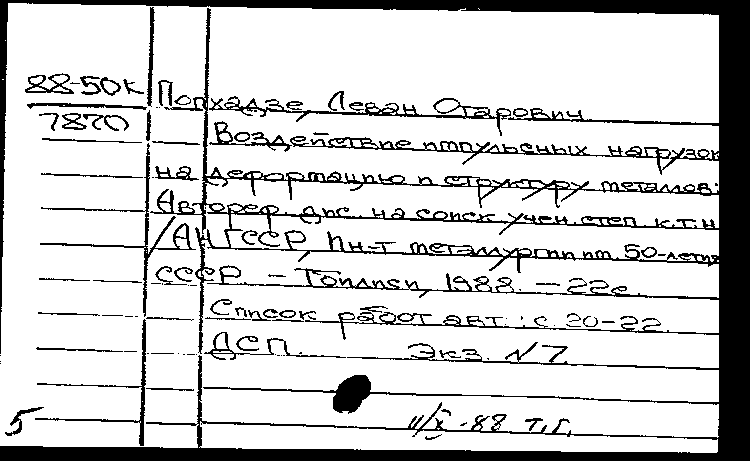 88-50к
7870
Попхадзе, Леван Отарович.
Воздействие импульсных нагрузок
на деформацию и структуру металлов:
Автореф. дис. на соиск. учен. степ. к.т.н
/АН ГССР, Ин-т металлургии им. 50-летия
СССР. – Тбилиси, 1988. – 22с.
Список работ авт.: с. 20-22.
ДСП. Экз. N 7
5 11/X-88 т.г.